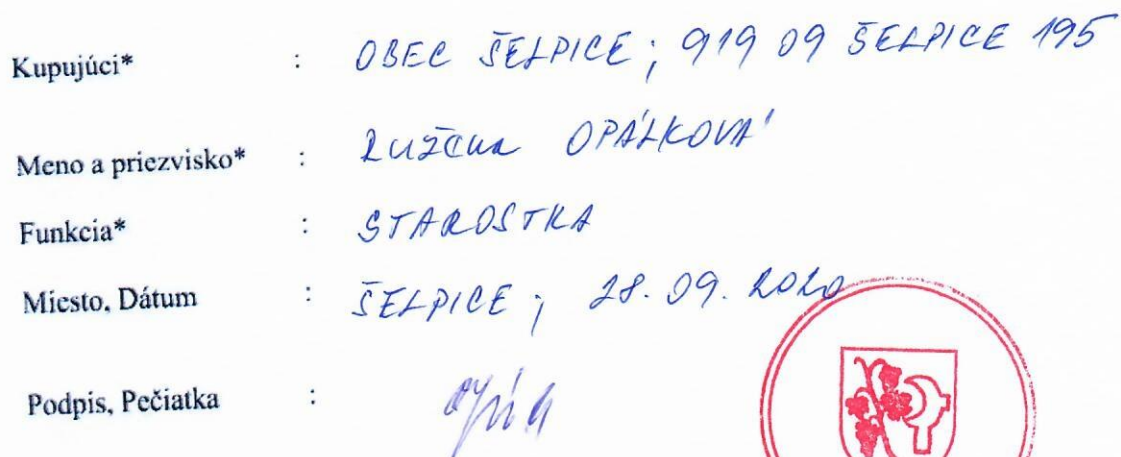 Kupujúci* : OBEC ŠELPICE; 919 09 ŠELPICE 195
Meno a priezvisko* : RUŽENA OPÁLKOVÁ
Funkcia* : STAROSTKA
Miesto, Dátum : ŠELPICE; 28.09.2020
Podpis, Pečiatka :